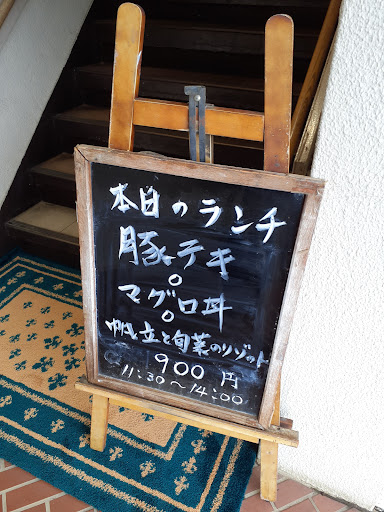 本日のランチ
豚テキ
○
マグロ丼
○
帆立と旬菜のリゾット
900円
11:30～14:00